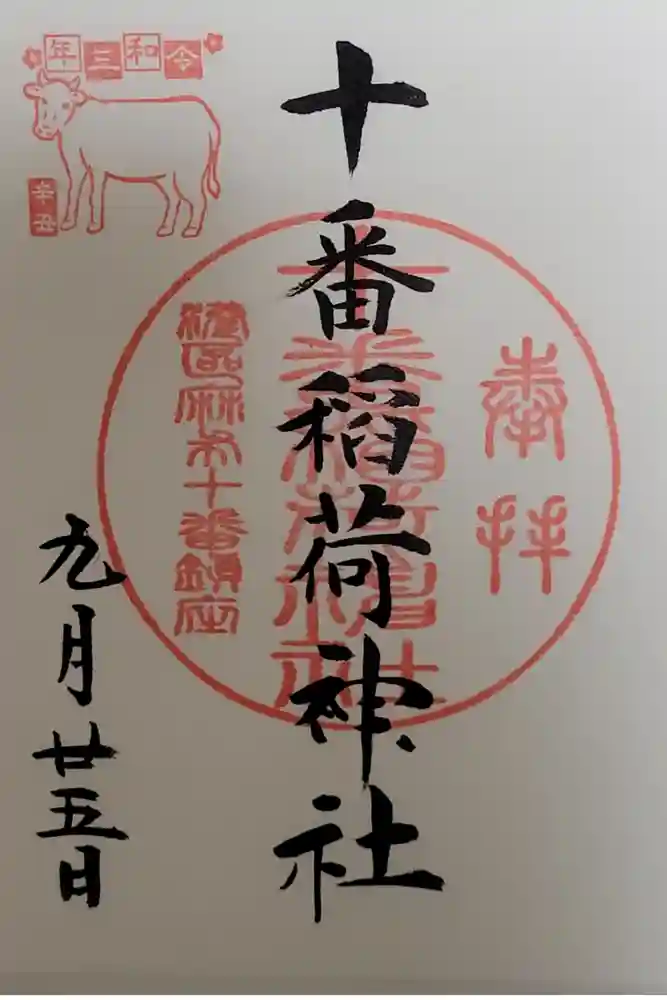 奉拝
十番稲荷神社
十番稲荷神社
港区麻布十番鎮座
九月廿五日
令和三年
辛丑